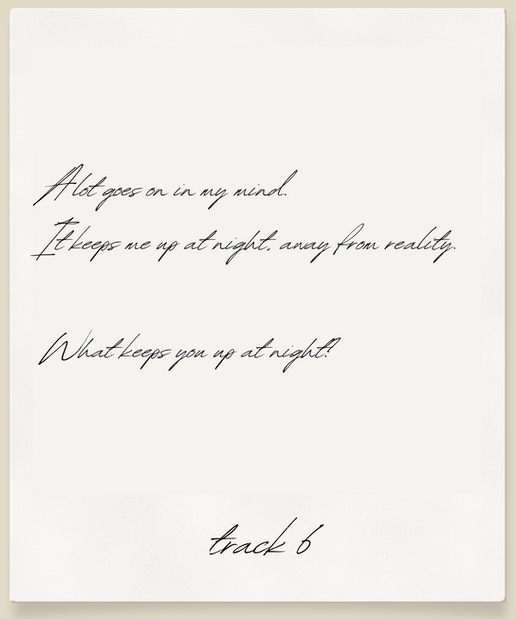 A lot goes on in my mind.
It keeps me up at night, away from reality.
What keeps you up at night?
track 6